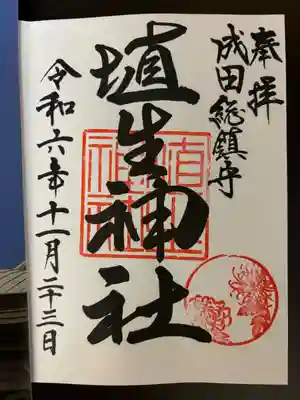 奉拝
成田総鎮守
埴生神社
令和六年十一月二十三日